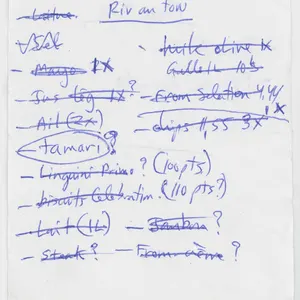 Riv an tow
- Laitue
✓ Sel
- Mayo 1X
- Jus lég 1X ?
- Ail (2X)
tamari ?
- Linguini Primo ? (100pts)
- biscuits Celebration (110 pts ?)
- Lait (1L)
- Steak ?
- huile olive 1X
- From Selection 4,44 1X
- chips 1,55 3X
- Jambon ?
- From crème ?